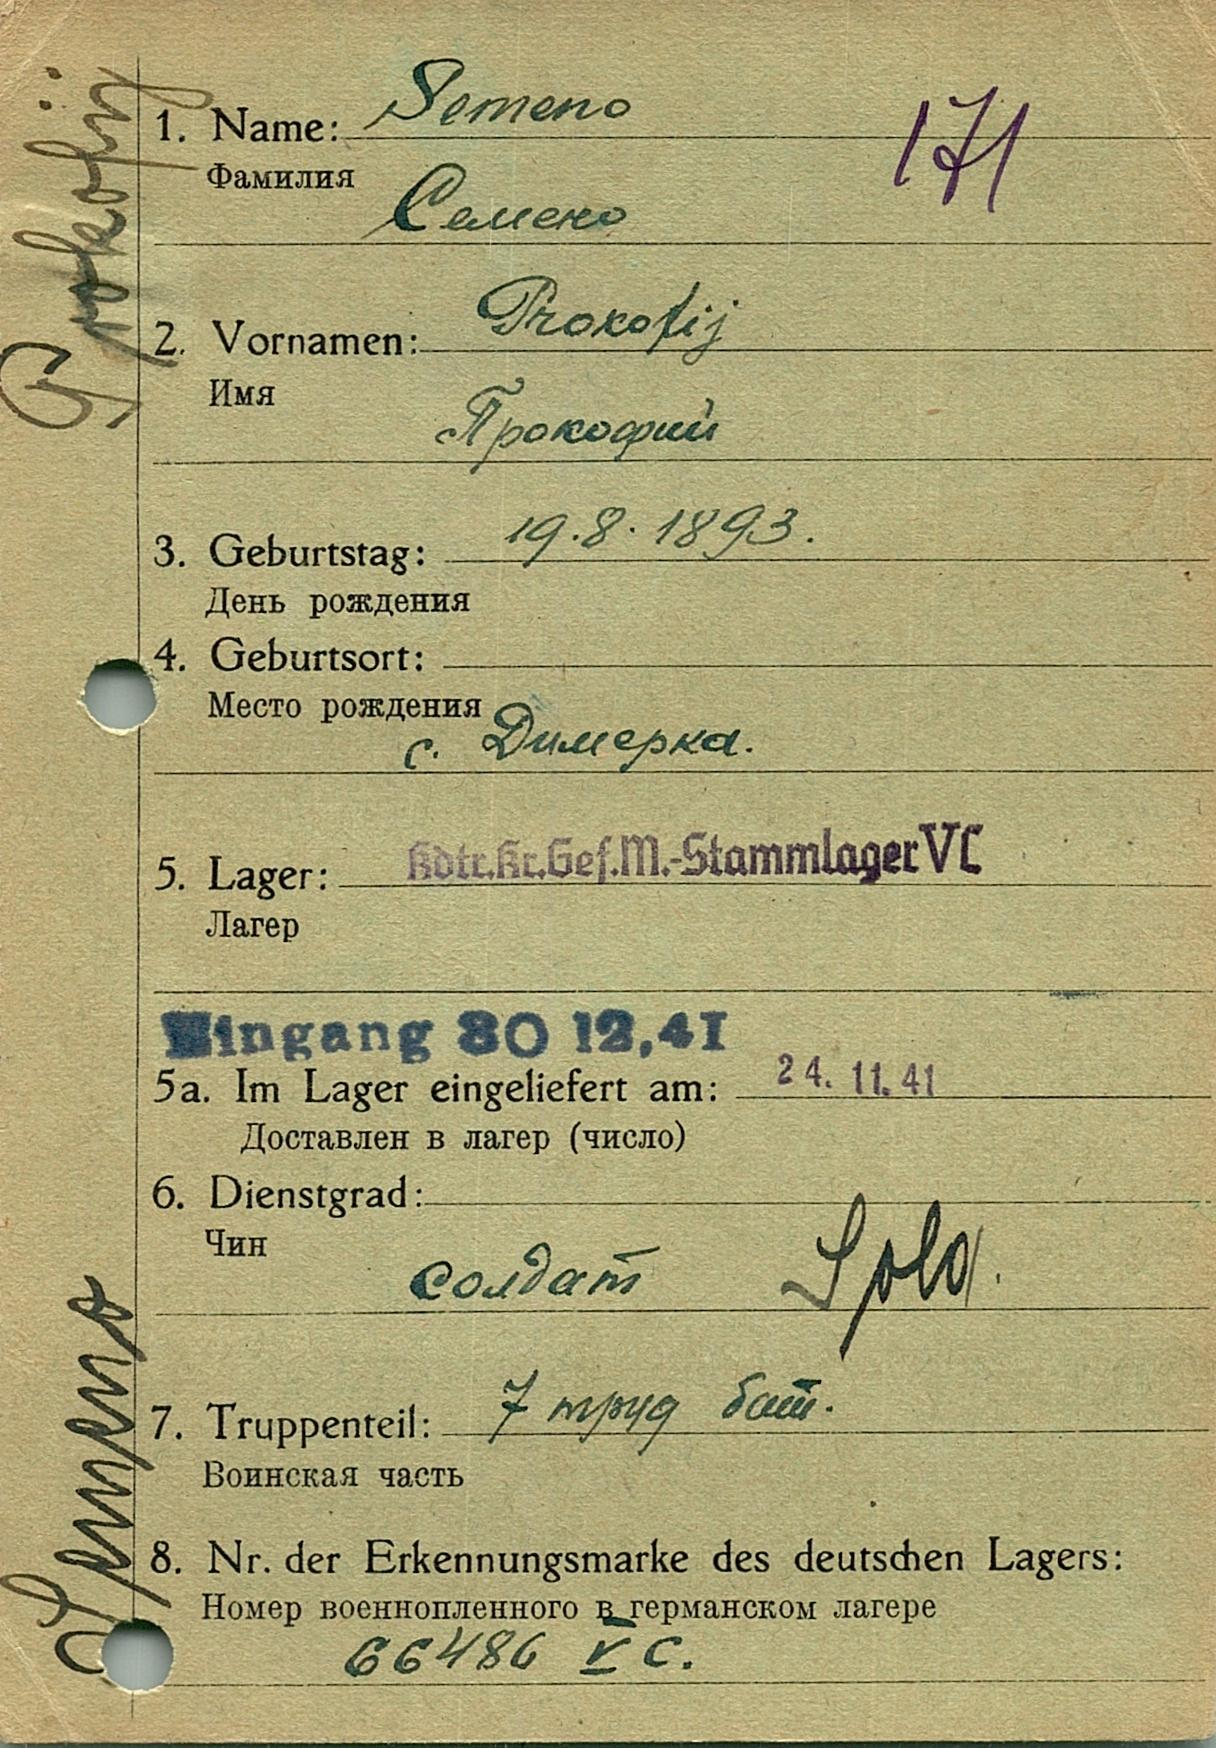 1. Name: Semeno
171
Фамилия
Семено
2. Vornamen: Prokofij
Имя
Прокофий
3. Geburtstag: 19.8.1893.
День рождения
4. Geburtsort:
Место рождения
с. Димерка.
5. Lager: Kdtr.Kr.Gef.M.-Stammlager VC
Лагер
Eingang 30 12.41
5a. Im Lager eingeliefert am: 24. 11. 41
Доставлен в лагер (число)
6. Dienstgrad:
Чин
солдат Sold.
7. Truppenteil: 7 труд бат.
Воинская часть
8. Nr. der Erkennungsmarke des deutschen Lagers:
Номер военнопленного в германском лагере
66486 V C.
Semeno Prokofij